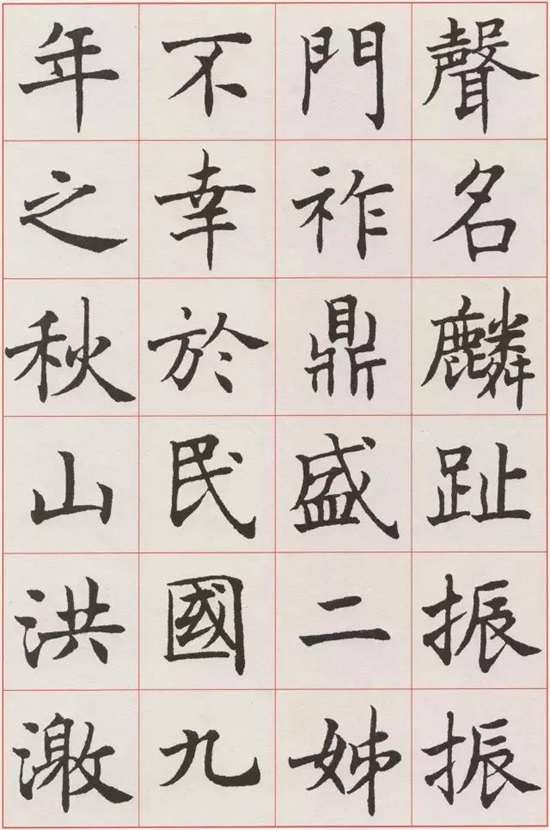 聲名麟趾振振
門祚鼎盛二姊
不幸於民國九
年之秋山洪激